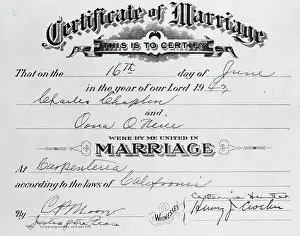 Certificate of Marriage
THIS IS TO CERTIFY
That on the 16th day of June
in the year of our Lord 1943
Charles Chaplin
and
Oona O'Neill
WERE BY ME UNITED IN
MARRIAGE
At Carpenteria
according to the laws of California
C P Moon
By Justice of the Peace
WITNESSES
Catherine Hunter
Henry J. Crocker